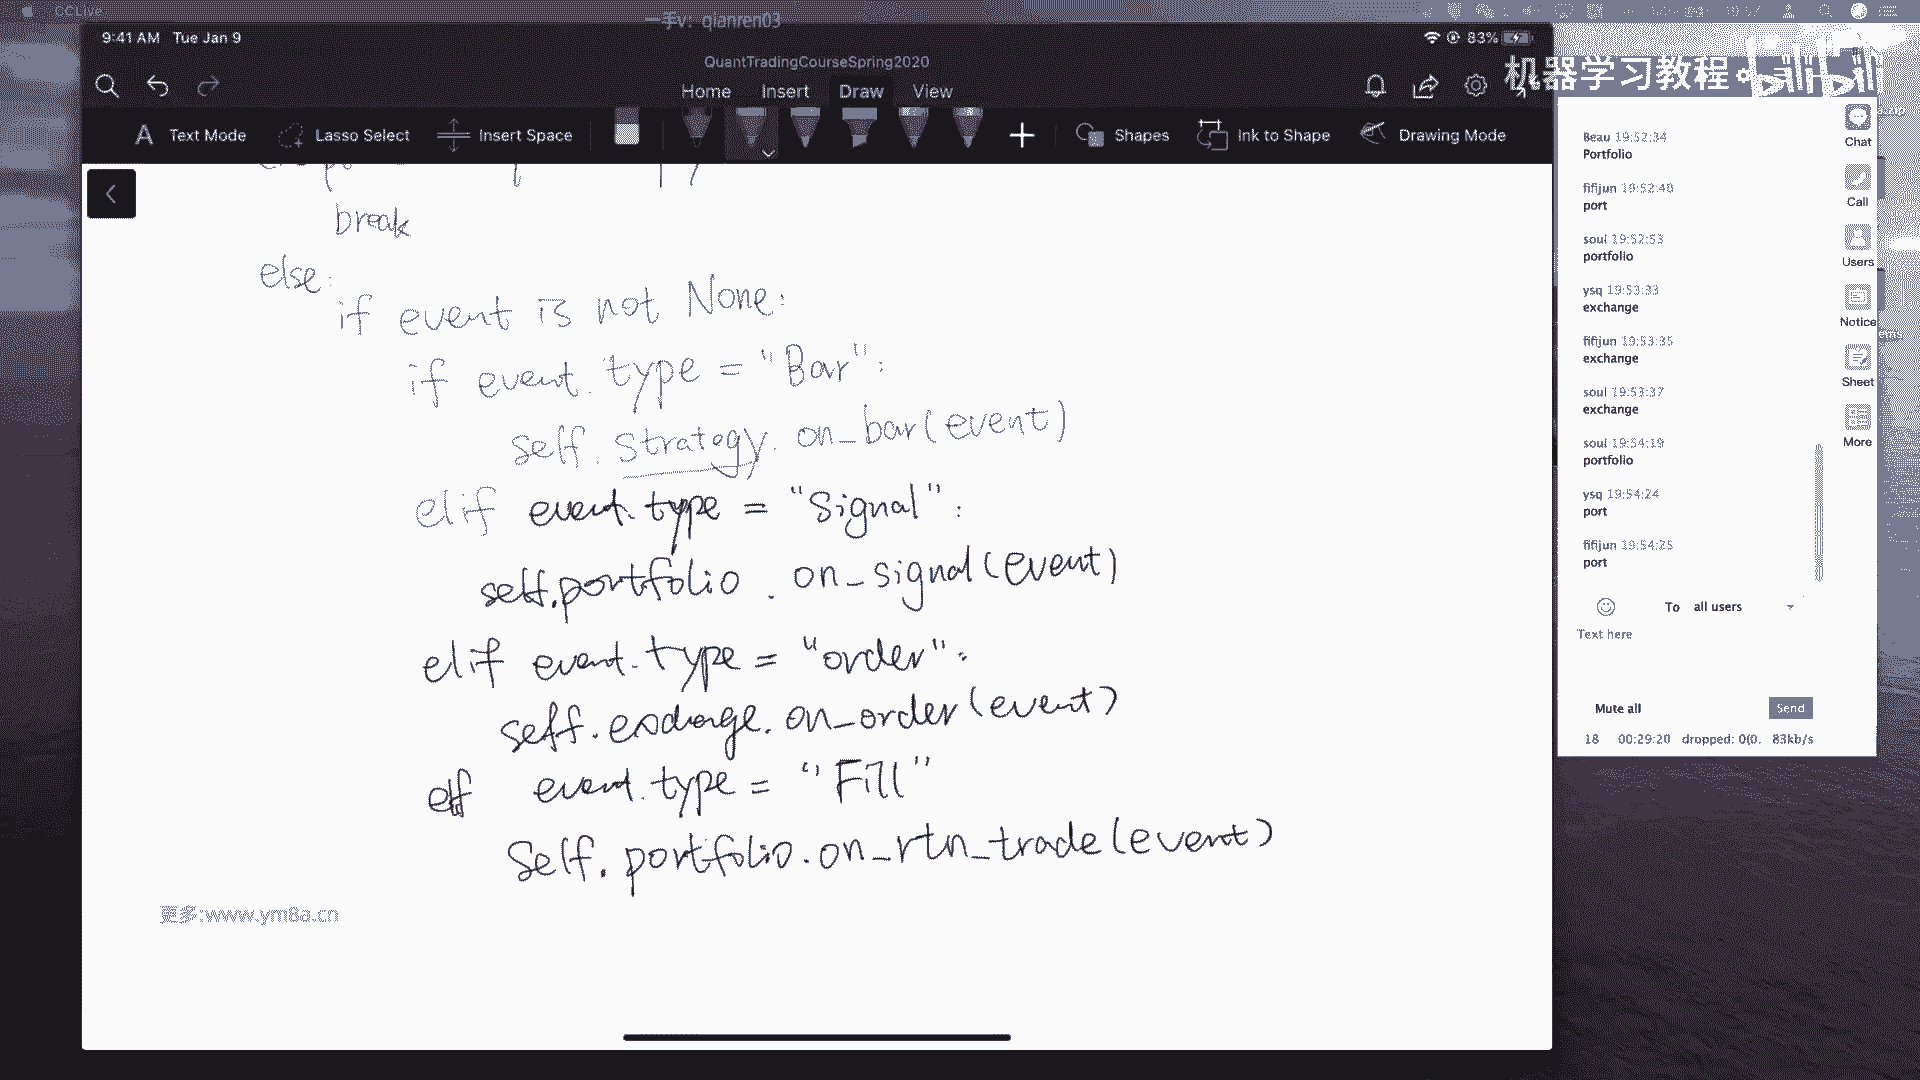 CCLive
一手v: qianren03
9:41 AM Tue Jan 9
83%
QuantTradingCourseSpring2020
机器学习教程 bilibili
Home Insert Draw View
Text Mode Lasso Select Insert Space Shapes Ink to Shape Drawing Mode
break
else:
if event is not None:
if event.type = "Bar":
self.strategy.on_bar(event)
elif event.type = "Signal":
self.portfolio.on_signal(event)
elif event.type = "order":
self.exchange.on_order(event)
elif event.type = "Fill"
Self.portfolio.on_rtn_trade(event)
更多:www.ym8a.cn
Beau 19:52:34
Portfolio
fifijun 19:52:40
port
soul 19:52:53
portfolio
ysq 19:53:33
exchange
fifijun 19:53:35
exchange
soul 19:53:37
exchange
soul 19:54:19
portfolio
ysq 19:54:24
port
fifijun 19:54:25
port
To all users
Text here
Mute all Send
18 00:29:20 dropped: 0(0. 83kb/s
Chat
Call
Users
Notice
Sheet
More